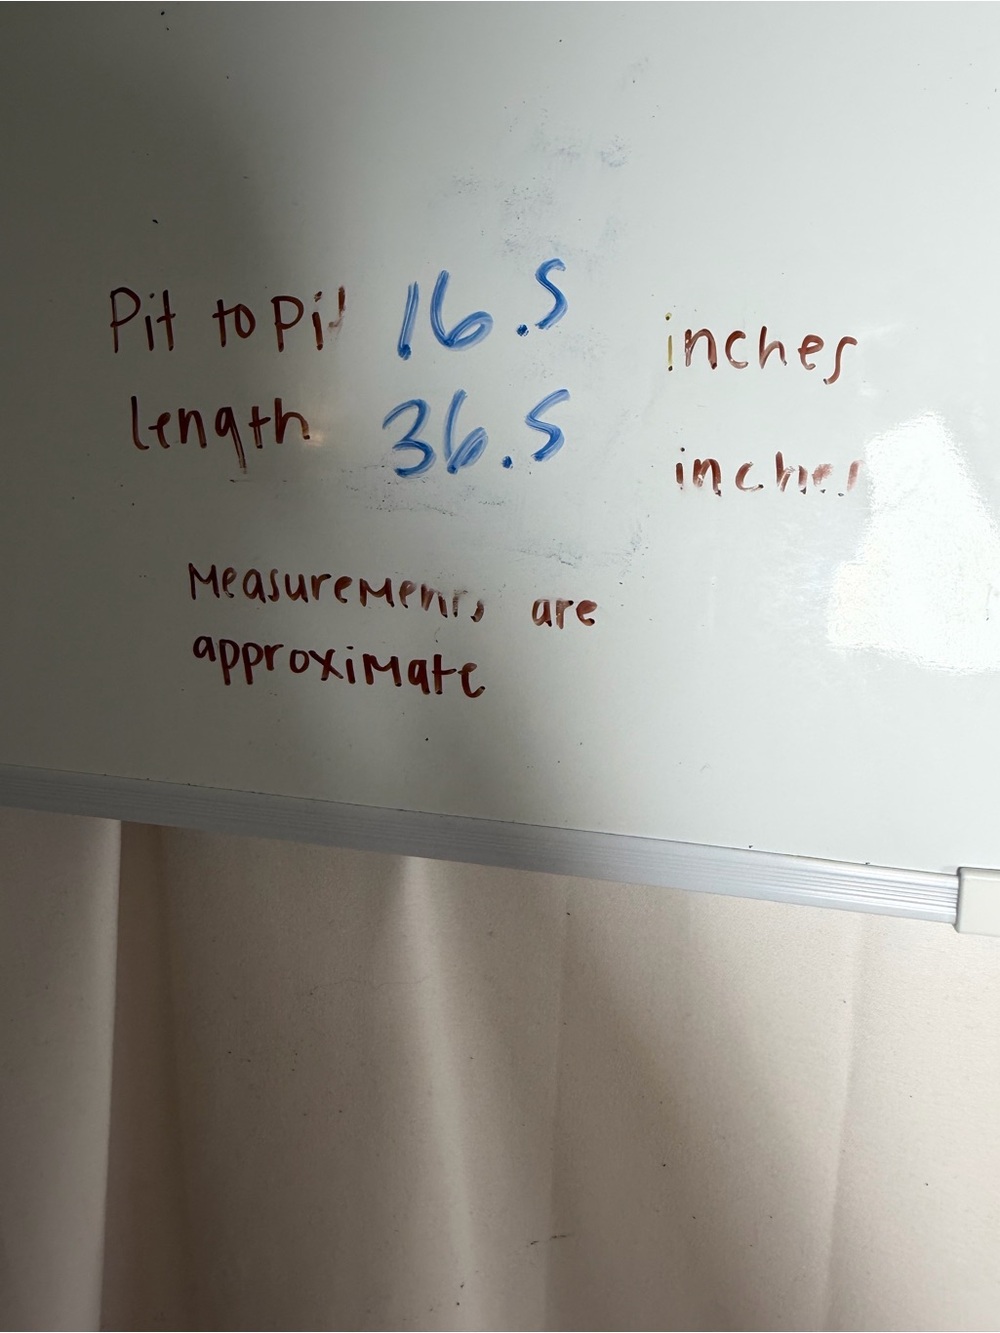 Pit to Pit 16.5 inches
length 36.5 inches
Measurements are
approximate